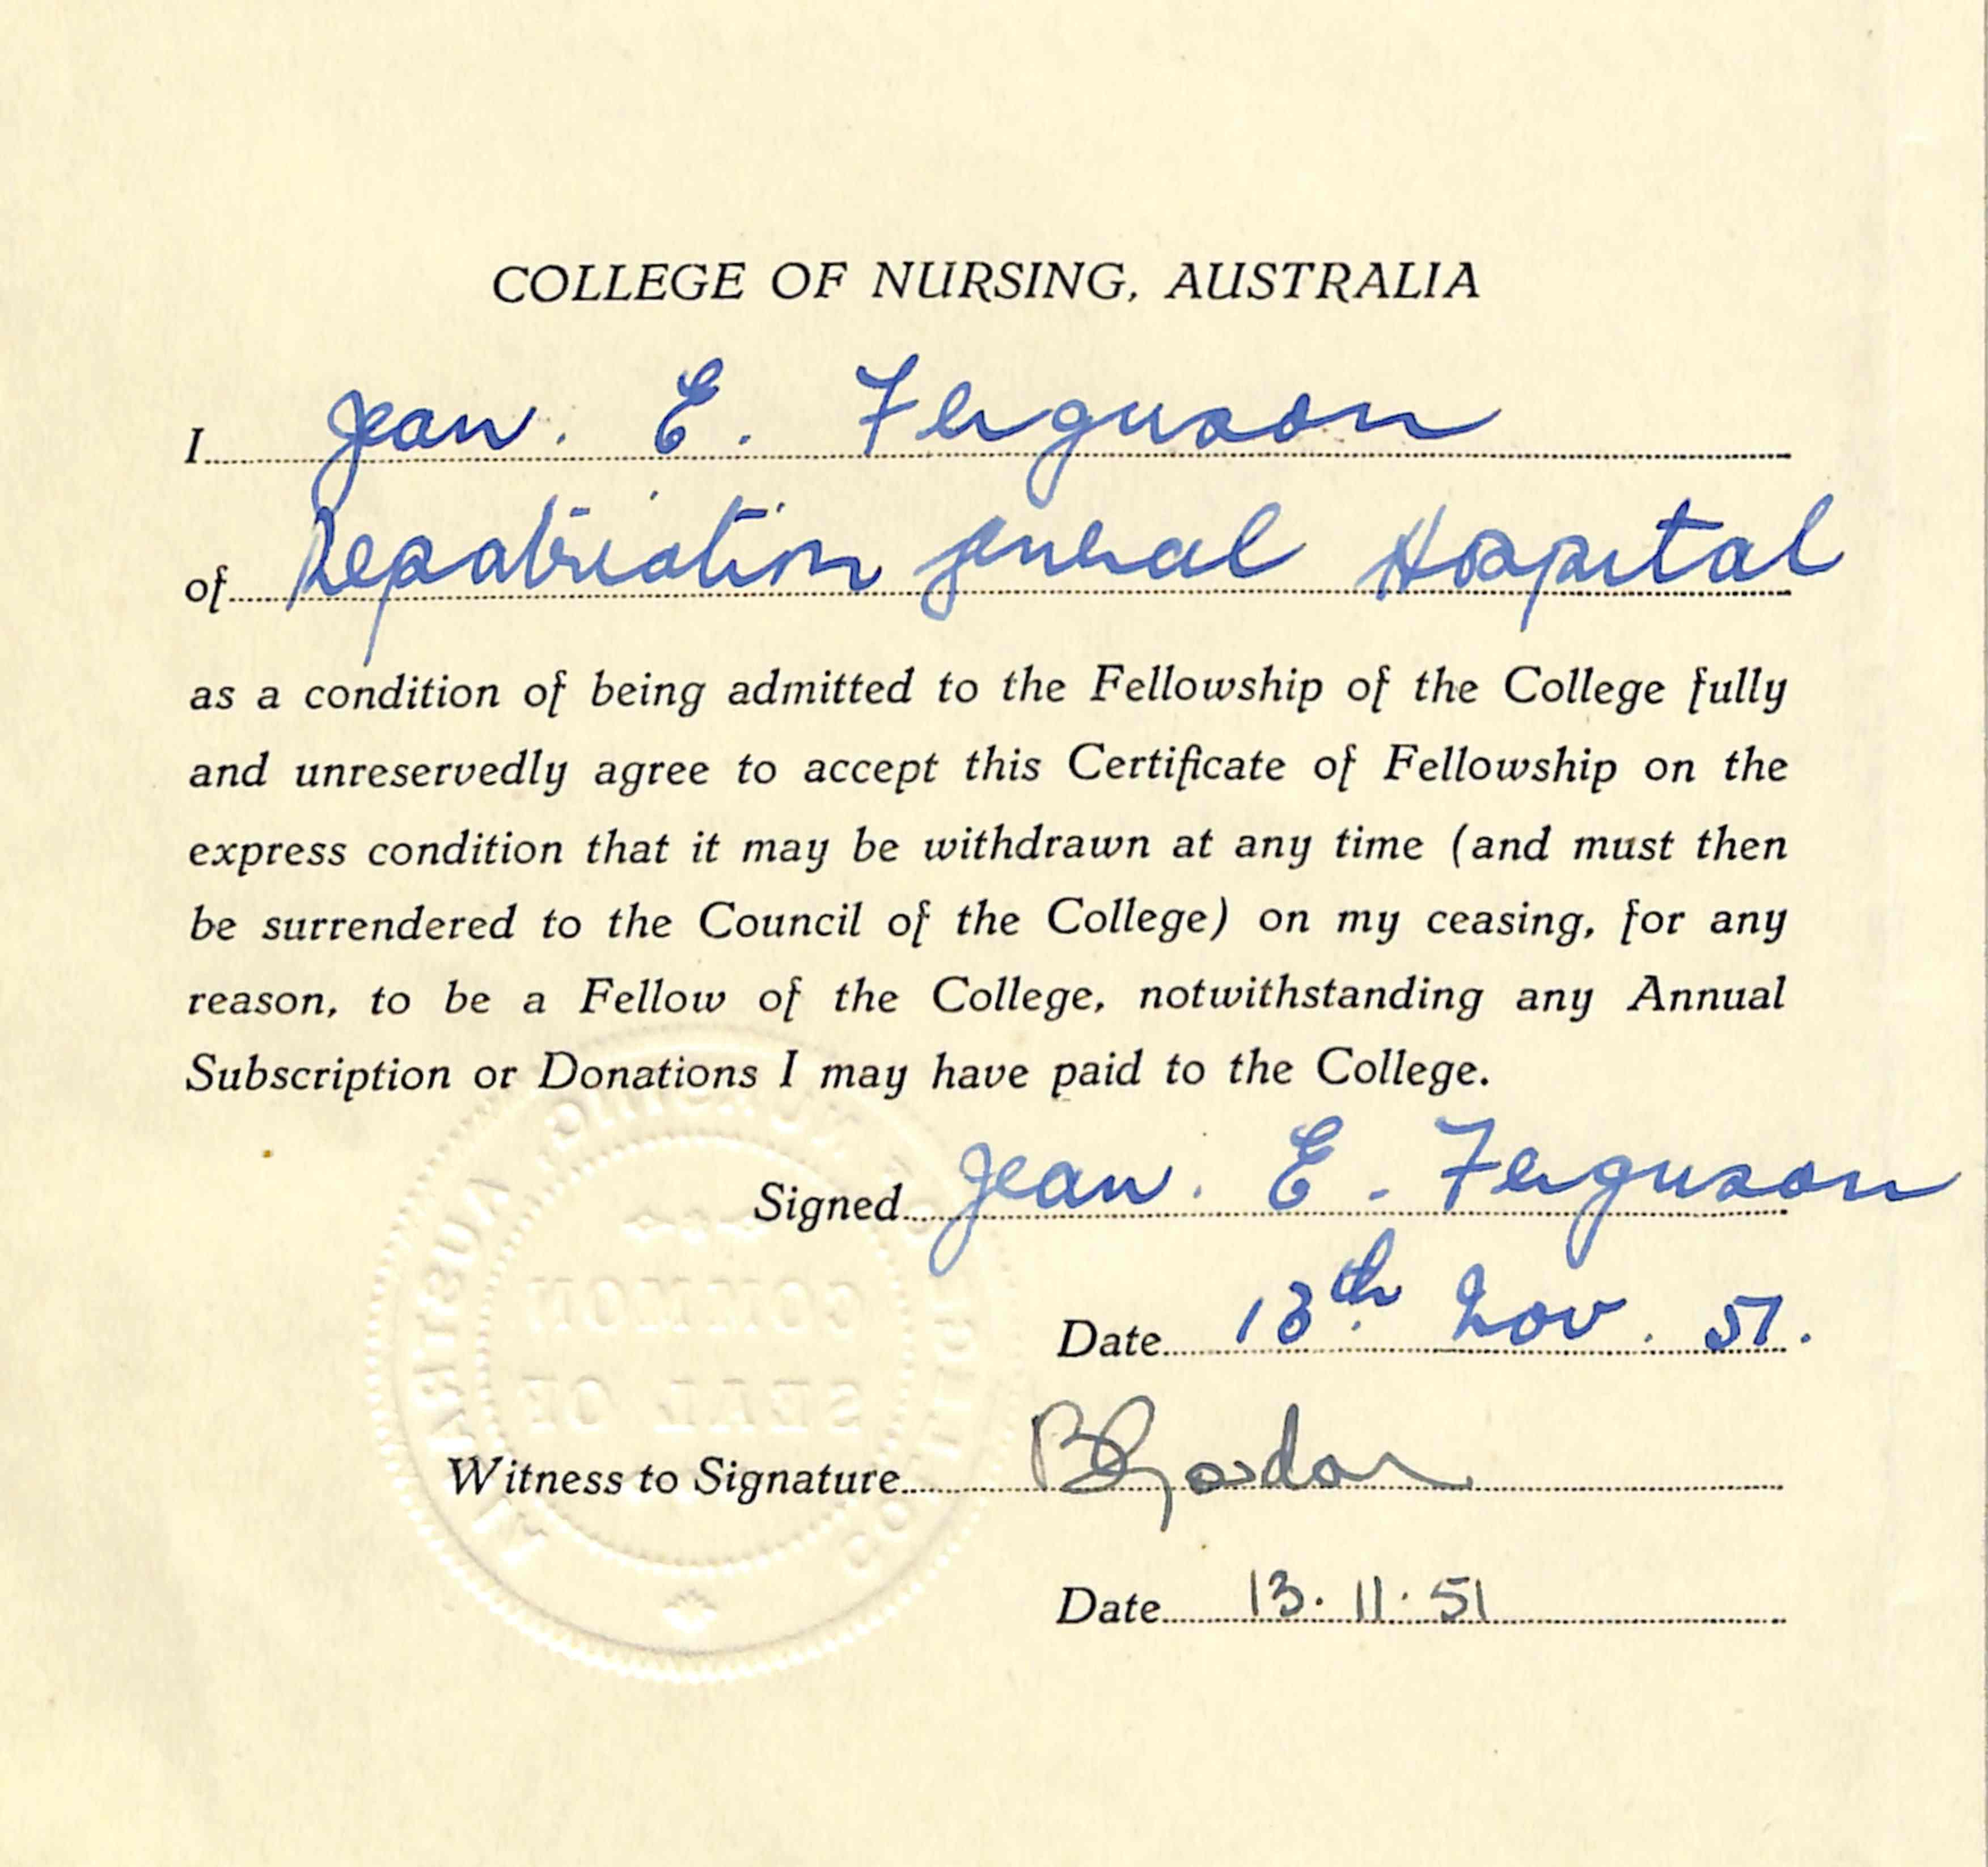 COLLEGE OF NURSING, AUSTRALIA
I Jean. E. Ferguson
of Repatriation General Hospital
as a condition of being admitted to the Fellowship of the College fully
and unreservedly agree to accept this Certificate of Fellowship on the
express condition that it may be withdrawn at any time (and must then
be surrendered to the Council of the College) on my ceasing, for any
reason, to be a Fellow of the College, notwithstanding any Annual
Subscription or Donations I may have paid to the College.
Signed Jean. E. Ferguson
Date 13th Nov. 51.
Witness to Signature BGordon
Date 13.11.51
COMMON
SEAL OF
COLLEGE OF NURSING, AUSTRALIA